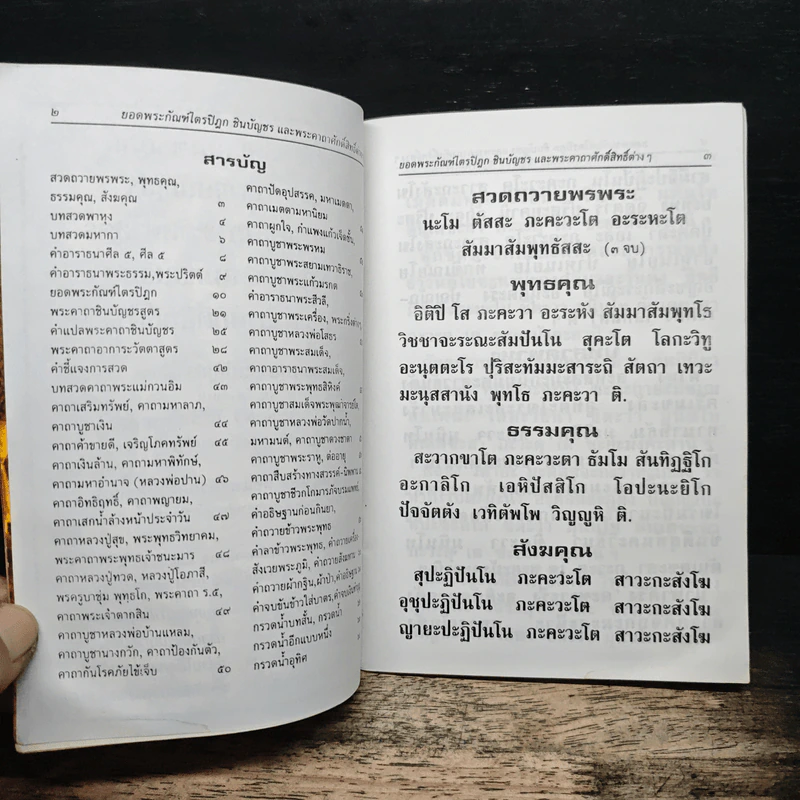 ๒ ยอดพระกัณฑ์ไตรปิฎก ชินบัญชร และพระคาถาศักดิ์สิทธิ์ต่าง
สารบัญ
สวดถวายพรพระ, พุทธคุณ,
ธรรมคุณ, สังฆคุณ ๓
บทสวดพาหุง ๔
บทสวดมหากา ๖
คำอาราธนาศีล ๕, ศีล ๕ ๘
คำอาราธนาพระธรรม,พระปริตต์ ๙
ยอดพระกัณฑ์ไตรปิฎก ๑๐
พระคาถาชินบัญชรสูตร ๒๑
คำแปลพระคาถาชินบัญชร ๒๕
พระคาถาอาการะวัตตาสูตร ๒๘
คำชี้แจงการสวด ๔๒
บทสวดคาถาพระแม่กวนอิม ๔๓
คาถาเสริมทรัพย์, คาถามหาลาภ,
คาถาบูชาเงิน ๔๔
คาถาค้าขายดี, เจริญโภคทรัพย์ ๔๕
คาถาเงินล้าน, คาถามหาพิทักษ์,
คาถามหาอำนาจ (หลวงพ่อปาน) ๔๖
คาถาอิทธิฤทธิ์, คาถาพญายม,
คาถาเสกน้ำล้างหน้าประจำวัน ๔๗
คาถาหลวงปู่สุข, พระพุทธวิทยาคม,
พระคาถาพระเจ้าชนะมาร ๔๘
คาถาหลวงปู่ทวด, หลวงปู่โอภาสี,
พรครูบาชุ่ม พุทธโก, พระคาถา ร.๕,
คาถาพระเจ้าตากสิน ๔๙
คาถาบูชาหลวงพ่อบ้านแหลม,
คาถาบูชานางกวัก, คาถาป้องกันตัว,
คาถากันโรคภัยไข้เจ็บ ๕๐
คาถาปัดอุปสรรค, มหาเมตตา,
คาถาเมตตามหานิยม
คาถาผูกใจ, กำแพงแก้วเจ็ดชั้น,
คาถาบูชาพระพรหม
คาถาบูชาพระสยามเทวาธิราช,
คาถาบูชาพระแก้วมรกต
คำอาราธนาพระสิวลี,
คาถาบูชาพระเครื่อง, พระกริ่งต่างๆ
คาถาบูชาหลวงพ่อโสธร
คาถาบูชาพระสมเด็จ,
คำอาราธนาพระสมเด็จ,
คาถาบูชาพระพุทธสิหิงค์
คาถาบูชาสมเด็จพระพุฒาจารย์โต,
คาถาบูชาหลวงพ่อวัดปากน้ำ,
มหามนต์, คาถาบูชาดวงชาตา
คาถาบูชาพระราหู, ต่ออายุ
คาถาสืบสร้างทางสวรรค์-นิพพาน
คาถาบูชาชีวกโกมารภัจบรมแพทย์,
คำอธิษฐานก่อนกินยา,
คำถวายข้าวพระพุทธ
คำลาข้าวพระพุทธ,
สังเวยพระภูมิ, คำถวายสังฆทาน
คำถวายผ้ากฐิน,ผ้าป่า,
คำจบขันข้าวใส่บาตร,
กรวดน้ำบทสั้น, กรวดน้ำ
กรวดน้ำอีกแบบหนึ่ง
กรวดน้ำอุทิศ
ยอดพระกัณฑ์ไตรปิฎก ชินบัญชร และพระคาถาศักดิ์สิทธิ์ต่าง ๆ ๓
สวดถวายพรพระ
นะโม ตัสสะ ภะคะวะโต อะระหะโต
สัมมาสัมพุทธัสสะ (๓ จบ)
พุทธคุณ
อิติปิ โส ภะคะวา อะระหัง สัมมาสัมพุทโธ
วิชชาจะระณะสัมปันโน สุคะโต โลกะวิทู
อะนุตตะโร ปุริสะทัมมะสาระถิ สัตถา เทวะ
มะนุสสานัง พุทโธ ภะคะวา ติ.
ธรรมคุณ
สะวากขาโต ภะคะวะตา ธัมโม สันทิฏฐิโก
อะกาลิโก เอหิปัสสิโก โอปะนะยิโก
ปัจจัตตัง เวทิตัพโพ วิญญูหิ ติ.
สังฆคุณ
สุปะฏิปันโน ภะคะวะโต สาวะกะสังโฆ
อุชุปะฏิปันโน ภะคะวะโต สาวะกะสังโฆ
ญายะปะฏิปันโน ภะคะวะโต สาวะกะสังโฆ